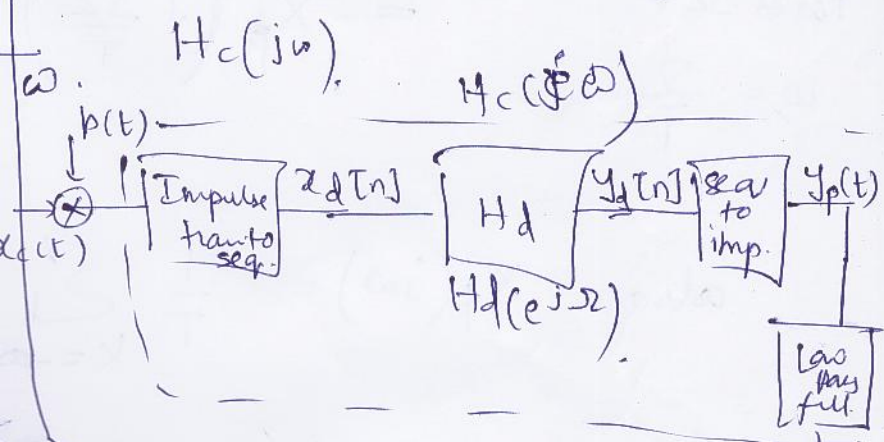 Hc(jω).
ω.
Hc(jω)
p(t)
xc(t)
Impulse
train to
seq.
xd[n]
Hd
Hd(ejΩ).
yd[n]
seq
to
imp.
yp(t)
Low
pass
filt.